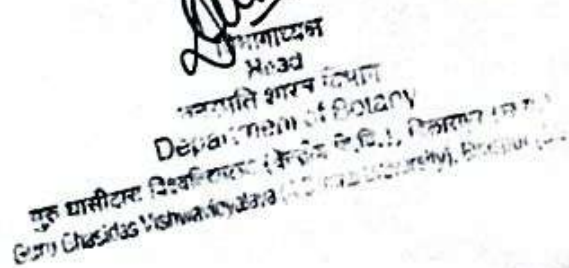 विभागाध्यक्ष
Head
वनस्पति शास्त्र विभाग
Department of Botany
गुरु घासीदास विश्वविद्यालय (केन्द्रीय वि.वि.), बिलासपुर (छ.ग.)
Guru Ghasidas Vishwavidyalaya (A Central University), Bilaspur